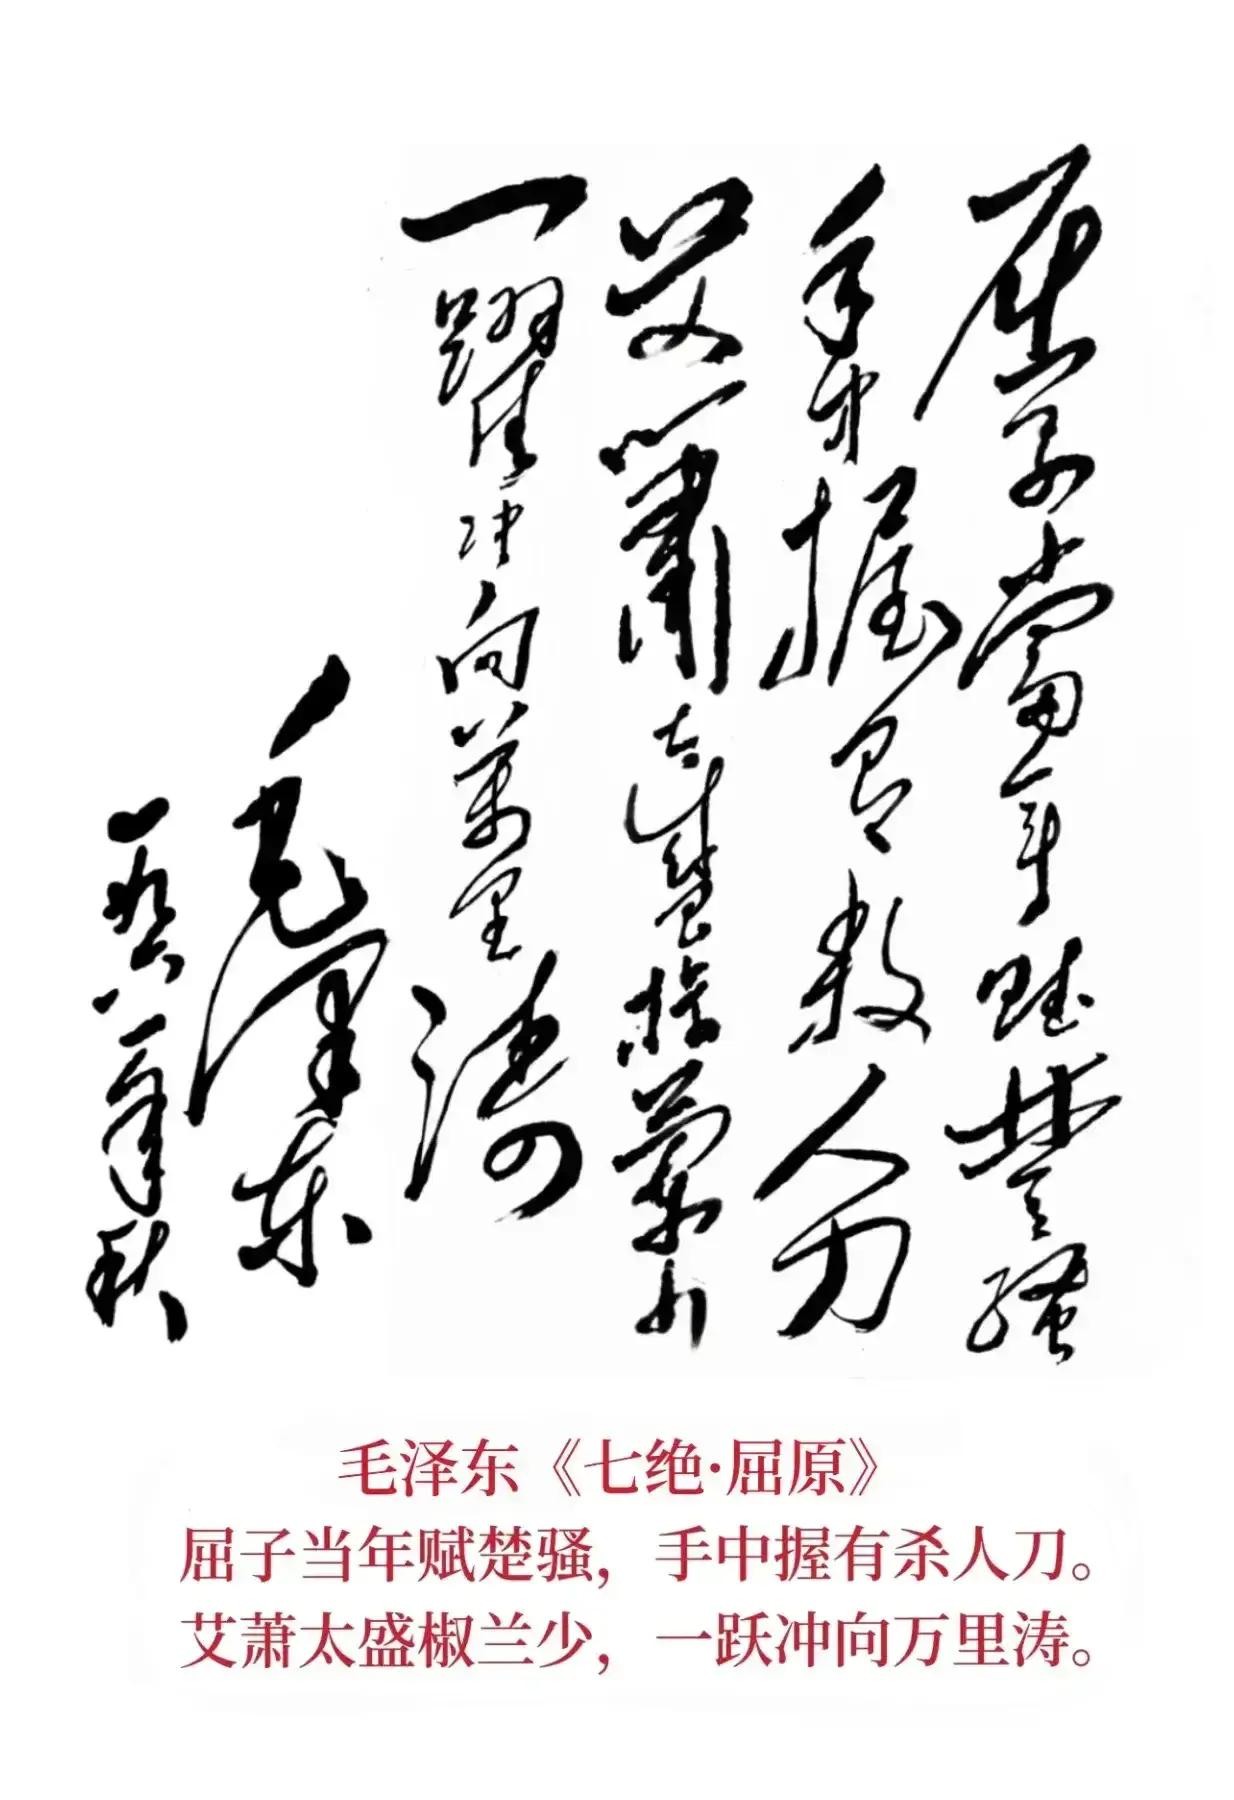 屈子當年賦楚騷
手中握有殺人刀
艾蕭太盛椒蘭少
一躍冲向萬里濤
毛澤東
一九六一年秋
毛泽东《七绝·屈原》
屈子当年赋楚骚，手中握有杀人刀。
艾萧太盛椒兰少，一跃冲向万里涛。